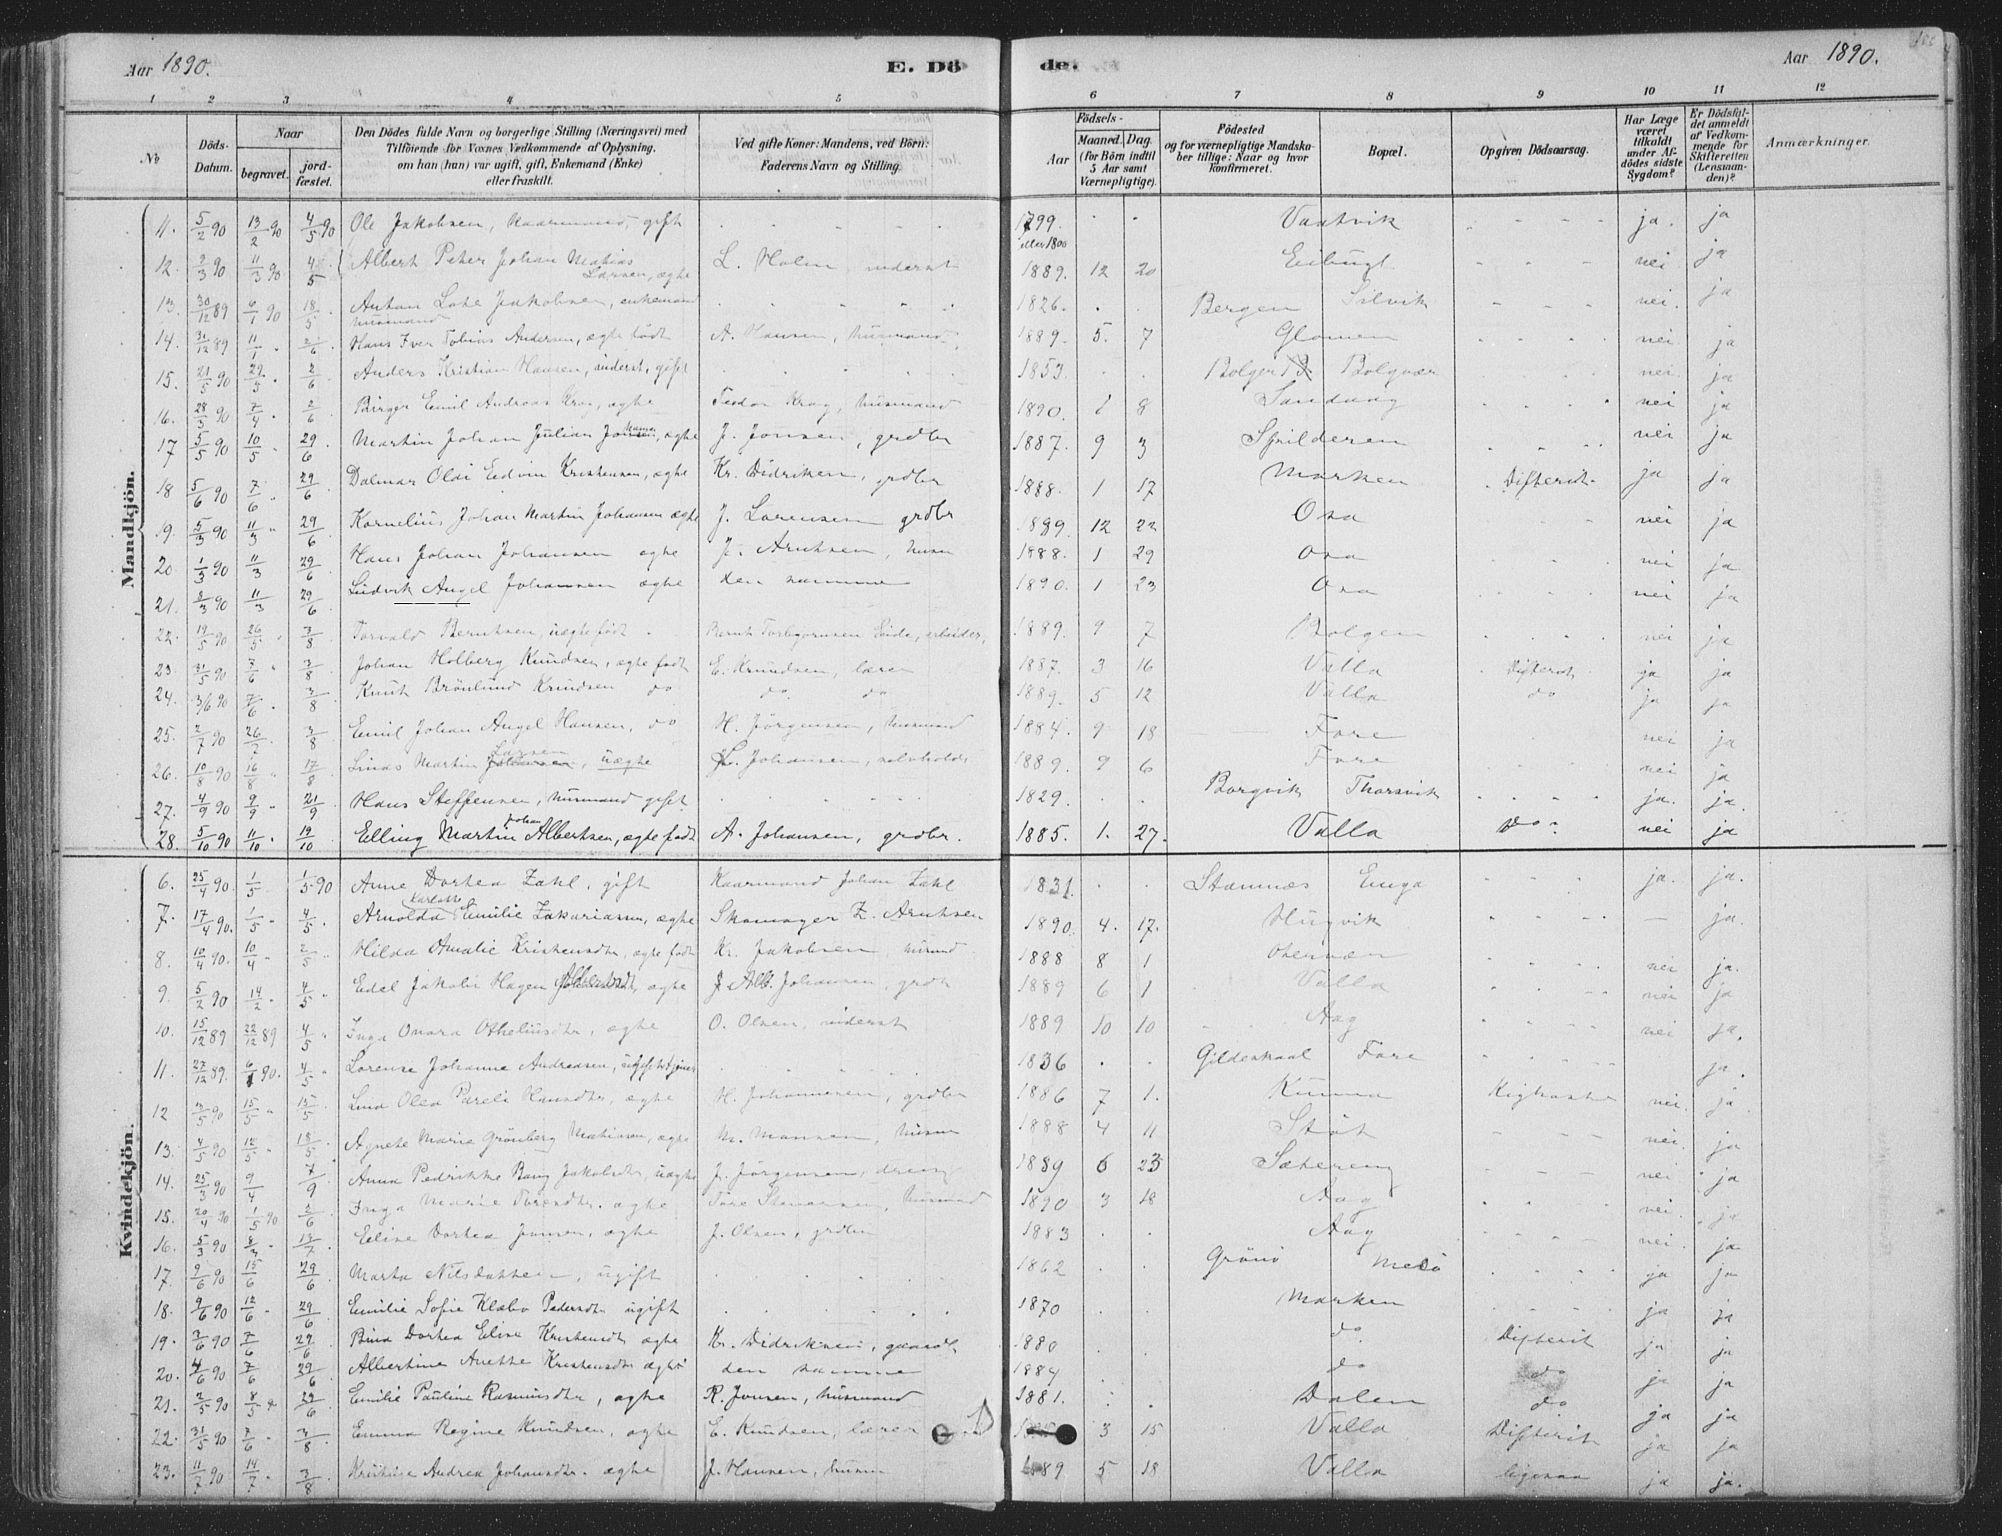 Aar 1890.
E. Dö
de.
Aar 1890.
1 2 3 4 5 6 7 8 9 10 11 12
No
Döds-Datum.
Naar
begravet.
jord-fæstet.
Den Dödes fulde Navn og borgerlige Stilling (Næringsvei) med
Tilföiende for Voxnes Vedkommende af Oplysning,
om han (hun) var ugift, gift, Enkemand (Enke)
eller fraskilt.
Ved gifte Koner: Mandens, ved Börn:
Faderens Navn og Stilling.
Födsels-
Aar
Maaned. Dag.
(for Börn indtil
5 Aar samt
Værnepligtige).
Födested
og for værnepligtige Mandska-
ber tillige: Naar og hvor
konfirmeret.
Bopæl.
Opgiven Dödsaarsag.
Har Læge
været
tilkaldt
under Af-
dödes sidste
Sygdom?
Er Dödsfal-
det anmeldt
af Vedkom-
mende for
Skifteretten
(Lensman-
den)?
Anmærkninger.
Mandkjön.
11. 5/2 90 13/2 90 4/5 90 Ole Jakobsen, Kaarmand, gift 1799. eller 1800 Vaatvik ja. ja
12. 2/3 90 11/3 90 4/5 Albert Peter Johan Matias Larsen, ægte L. Holm inderst 1889. 12 20 Eibugt nei ja
13. 30/12 89 6/1 90 18/5 Anton Lote Jakobsen, enkemand husmand 1826. Bergen Silvik nei. ja
14. 31/12 89 11/1 2/6 Hans Iver Tobias Andersen, ægte født A. Hansen, husmand 1889. 5. 7 Glomen nei ja
15. 21/5 90 29/5 2/6 Anders Kristian Hansen, inderst, gift 1853. Bolgen Bolgvær nei. ja
16. 28/3 90 7/4 2/6 Birger Emil Andreas Krog, ægte Teodor Krog, husmand 1890. 1 8 Sandvaag nei ja
17 5/5 90 10/5 29/6 Martin Johan Julian Jonsen, ægte J. Jonsen, grdbr 1887. 9 3 Spilderen nei ja
18 5/6 90 7/6 29/6 Dalmar Olai Edvin Kristensen, ægte Kr. Didriksen, grdbr 1888. 1 17 Marken Difterit. ja ja
19. 5/3 90 11/3 29/6 Kornelius Johan Martin Johansen ægte J. Lorensen grdbr 1889. 12 22 Osa nei ja
20 1/3 90 11/3 29/6 Hans Johan Johansen ægte J. Arntsen, husm 1888. 1 29 Osa nei ja
21. 8/3 90 11/3 29/6 Ludvik Angel Johansen ægte den samme 1890. 1 23 Osa nei ja
22. 19/5 90 26/5 3/8 Torvald Berntsen, uægte født Bernt Torbgornsen Eide, arbeider, 1889. 9 7 Bolgen nei ja
23. 31/5 90 7/6 3/8 Johan Holberg Knudsen, ægte født E. Knudsen, lærer 1887. 3 16 Valla Difterit ja ja
24. 3/6 90 7/6 3/8 Knut Brönlund Knudsen do do do 1889. 5 12 Valla do ja ja
25. 2/7 90 26/7 3/8 Emil Johan Angel Hansen, do H. Jørgensen, husmand 1884. 9 18 Fore nei ja
26. 10/8 90 16/8 17/8 Linas Martin Larsen, uægte L. Johansen, selvholder 1889. 9 6 Fore nei ja
27. 4/9 90 9/9 21/9 Hans Steffensen, husmand gift 1829. Borgvik Thorsvik ja. ja.
28. 5/10 90 11/10 19/10 Elling Martin Johan Albertsen, ægte født A. Johansen, grdbr. 1885. 1. 27. Valla Do nei ja
Kvindekjön.
6. 25/4 90 1/5 1/5 90 Anne Dortea Zahl, gift Kaarmand Johan Zahl 1831. Stamnæs Enga ja. ja.
7. 17/4 90. 1/5 4/5 Arnolda Emilie Zakariasen, ægte Skomager Z. Arntsen 1890. 4. 17. Hugvik ja.
8. 10/4 90. 10/4 2/5 Hilda Amalie Kristensdtr, ægte født Kr. Jakobsen husmd 1888 8 1 Otervær nei ja.
9. 5/2 90 14/2 4/5 Edel Jakobi Hagen, ægte J. Alb. Johansen, grdb 1889 6 1 Valla nei ja
10. 15/12 89 22/12 89 4/5 Inga Onara Otheliusdtr, ægte O. Olsen, inderst 1889 10 10 Aag nei ja.
11. 27/12 89. 6/1 90. 4/5 Lorense Johanne Andreasen, 1836 Gildeskaal Fore ja.
12 3/5 90 15/5 15/5 Lina Olea Pareli Hansdtr, ægte H. Johannesen, grdbr 1886 7 1. Kunna Kighoste nei. ja
13. 4/5 90 12/5 18/5 Agnete Marie Grönberg Matiasen, ægte M. Monsen, husm 1888 4 11 Støt nei. ja
14. 25/3 90 9/4 7/9 Anna Pedrikke Bang Jakobsdtr, uægte J. Jørgensen, dreng 1889 6 23 Sætereng nei ja
15. 20/4 90 1/5 90 2/6 Inga Marie Toresdtr. ægte Tore Stenersen, husmand 1890 3 18 Aag nei. ja
16. 5/3 90 8/3 13/7 Eline Dortea Jonsen, ægte J. Olsen, grdbr 1883 Aag nei. ja
17. 9/6 90 15/6 29/6 Marta Nilsdatter, ugift 1862 Grönö Mesö ja ja
18. 9/6 90 12/6 29/6 Emilie Sofie Klæbo Pedersdtr ugift 1870 Marken ja ja
19. 3/6 90 7/6 29/6 Bina Dortea Eline Kristensdt ægte Kr. Didriksen, gaardb 1880 do Difterit ja ja
20. 4/6 90 7/6 29/6 Albertine Anette Kristensdtr ægte den samme 1884 do do ja ja
21. 2/5 90 8/5 29/6 Emilie Pauline Rasmusdtr, ægte R. Jonsen, husmand 1881. Dalen do ja ja
22. 31/5 90 7/6 3/8 Emma Regine Knudsen, ægte E. Knudsen, lærer 3 15 Valla Difterit ja ja
23. 11/7 90 14/7 3/8 Kristine Andrea Johansdtr. ægte J. Hansen, husm 1889 5 18 Valla ja ja.